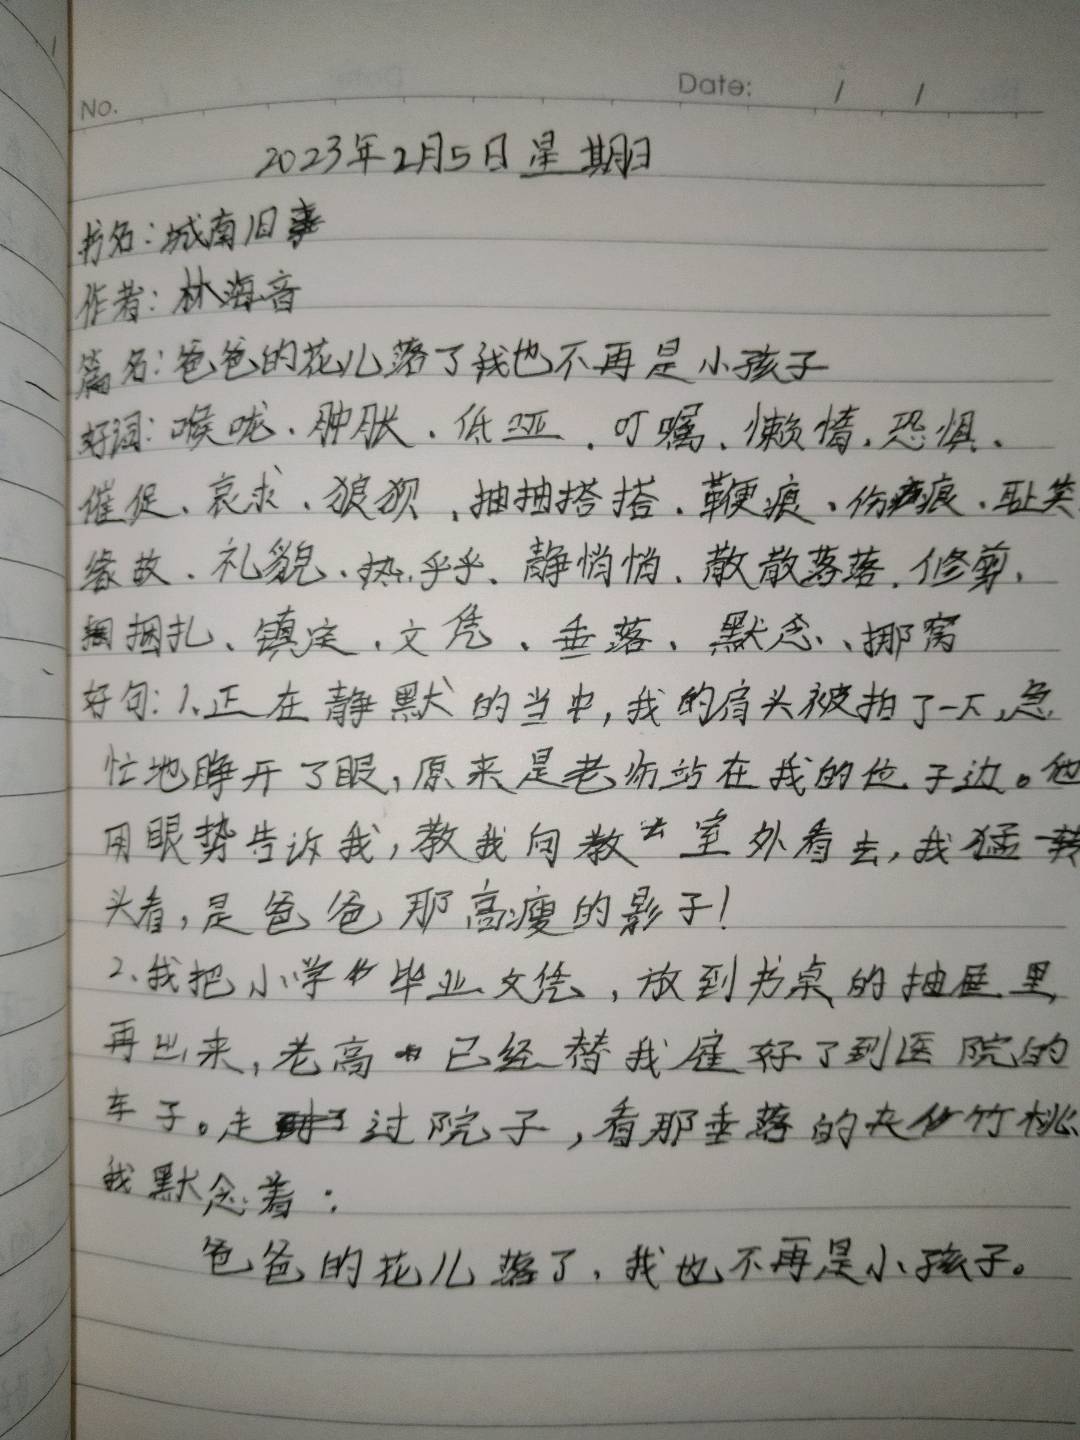 No.
Date: / /
2023年2月5日 星期日
书名:城南旧事
作者:林海音
篇名:爸爸的花儿落了我也不再是小孩子
好词:喉咙、肿胀、低哑、叮嘱、懒惰、恐惧、
催促、哀求、狼狈、抽抽搭搭、鞭痕、伤痕、耻笑
缘故、礼貌、热乎乎、静悄悄、散散落落、修剪、
捆扎、镇定、文凭、垂落、默念、挪窝
好句:1、正在静默的当中,我的肩头被拍了一下,急
忙地睁开了眼,原来是老师站在我的位子边。他
用眼势告诉我,教我向教室外看去,我猛一转
头看,是爸爸那高瘦的影子!
2、我把小学毕业文凭,放到书桌的抽屉里
再出来,老高已经替我雇好了到医院的
车子。走过院子,看那垂落的夹竹桃
我默念着:
爸爸的花儿落了,我也不再是小孩子。